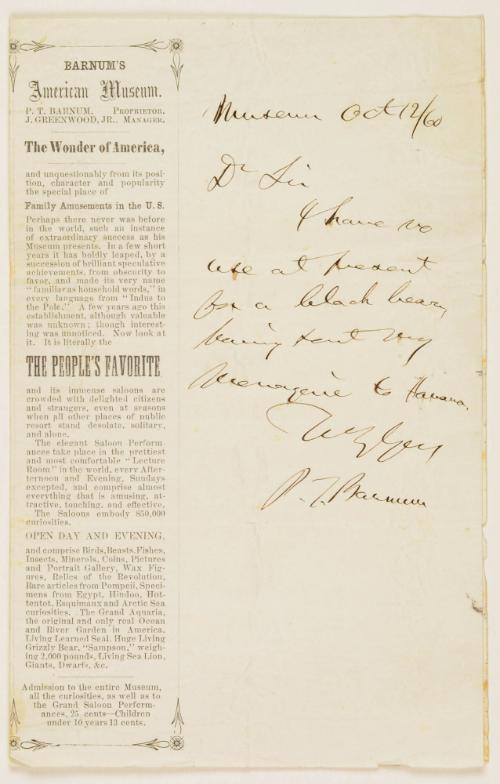 BARNUM'S
American Museum.
P. T. BARNUM, PROPRIETOR.
J. GREENWOOD, JR., MANAGER.
The Wonder of America,
and unquestionably from its posi-
tion, character and popularity
the special place of
Family Amusements in the U. S.
Perhaps there never was before
in the world, such an instance
of extraordinary success as his
Museum presents. In a few short
years it has boldly leaped, by a
succession of brilliant speculative
achievements, from obscurity to
favor, and made its very name
"familiar as household words," in
every language from "Indus to
the Pole." A few years ago this
establishment, although valuable
was unknown; though interest-
ing was unnoticed. Now look at
it. It is literally the
THE PEOPLE'S FAVORITE
and its immense saloons are
crowded with delighted citizens
and strangers, even at seasons
when all other places of public
resort stand desolate, solitary,
and alone.
The elegant Saloon Perform-
ances take place in the prettiest
and most comfortable "Lecture
Room" in the world, every After-
ternoon and Evening, Sundays
excepted, and comprise almost
everything that is amusing, at-
tractive, touching, and effective.
The Saloons embody 850,000
curiosities.
OPEN DAY AND EVENING,
and comprise Birds, Beasts, Fishes,
Insects, Minerals, Coins, Pictures
and Portrait Gallery, Wax Fig-
ures, Relics of the Revolution,
Rare articles from Pompeii, Speci-
mens from Egypt, Hindoo, Hot-
tentot, Esquimaux and Arctic Sea
curiosities. The Grand Aquaria,
the original and only real Ocean
and River Garden in America.
Living Learned Seal, Huge Living
Grizzly Bear, "Sampson," weigh-
ing 2,000 pounds, Living Sea Lion,
Giants, Dwarfs, &c.
Admission to the entire Museum,
all the curiosities, as well as to
the Grand Saloon Perform-
ances, 25 cents—Children
under 10 years 13 cents.
Museum Oct 12/60
Dr Sir
I have no
use at present
for a black bear,
having sent my
menagerie to Havana.
P. T. Barnum